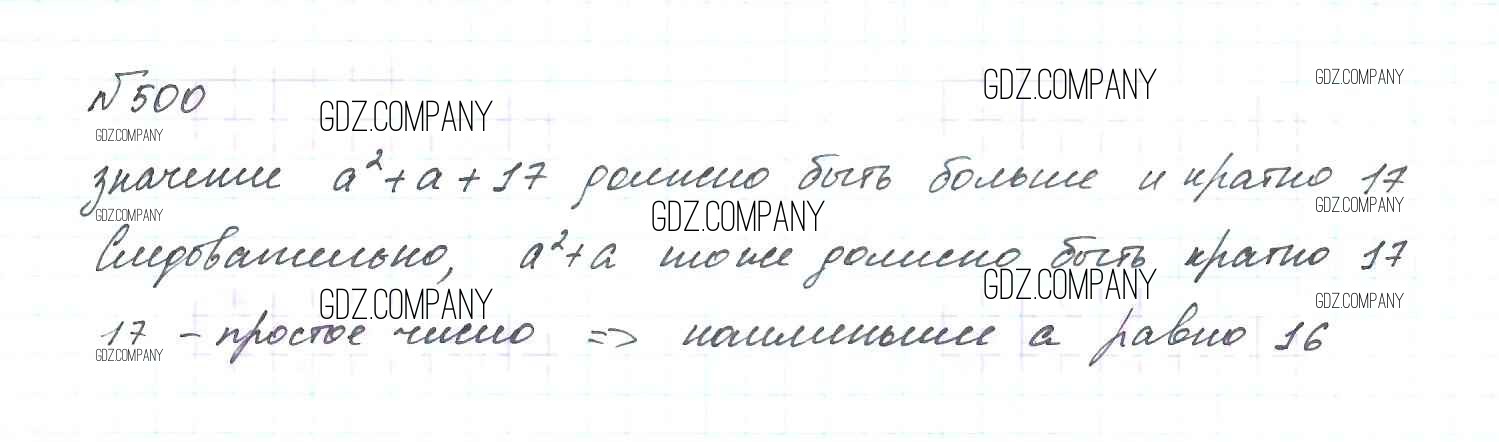 №500
GDZ.COMPANY
GDZ.COMPANY
GDZ.COMPANY
GDZ.COMPANY
значение a²+a+17 должно быть больше и кратно 17
GDZ.COMPANY
GDZ.COMPANY
GDZ.COMPANY
Следовательно, a²+a тоже должно быть кратно 17
GDZ.COMPANY
GDZ.COMPANY
GDZ.COMPANY
17 – простое число => наименьшее a равно 16
GDZ.COMPANY